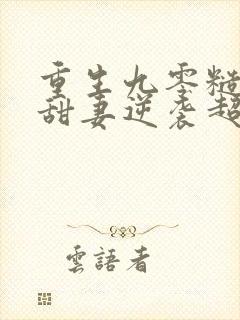 重生九零糙
甜妻逆袭超
雲語者